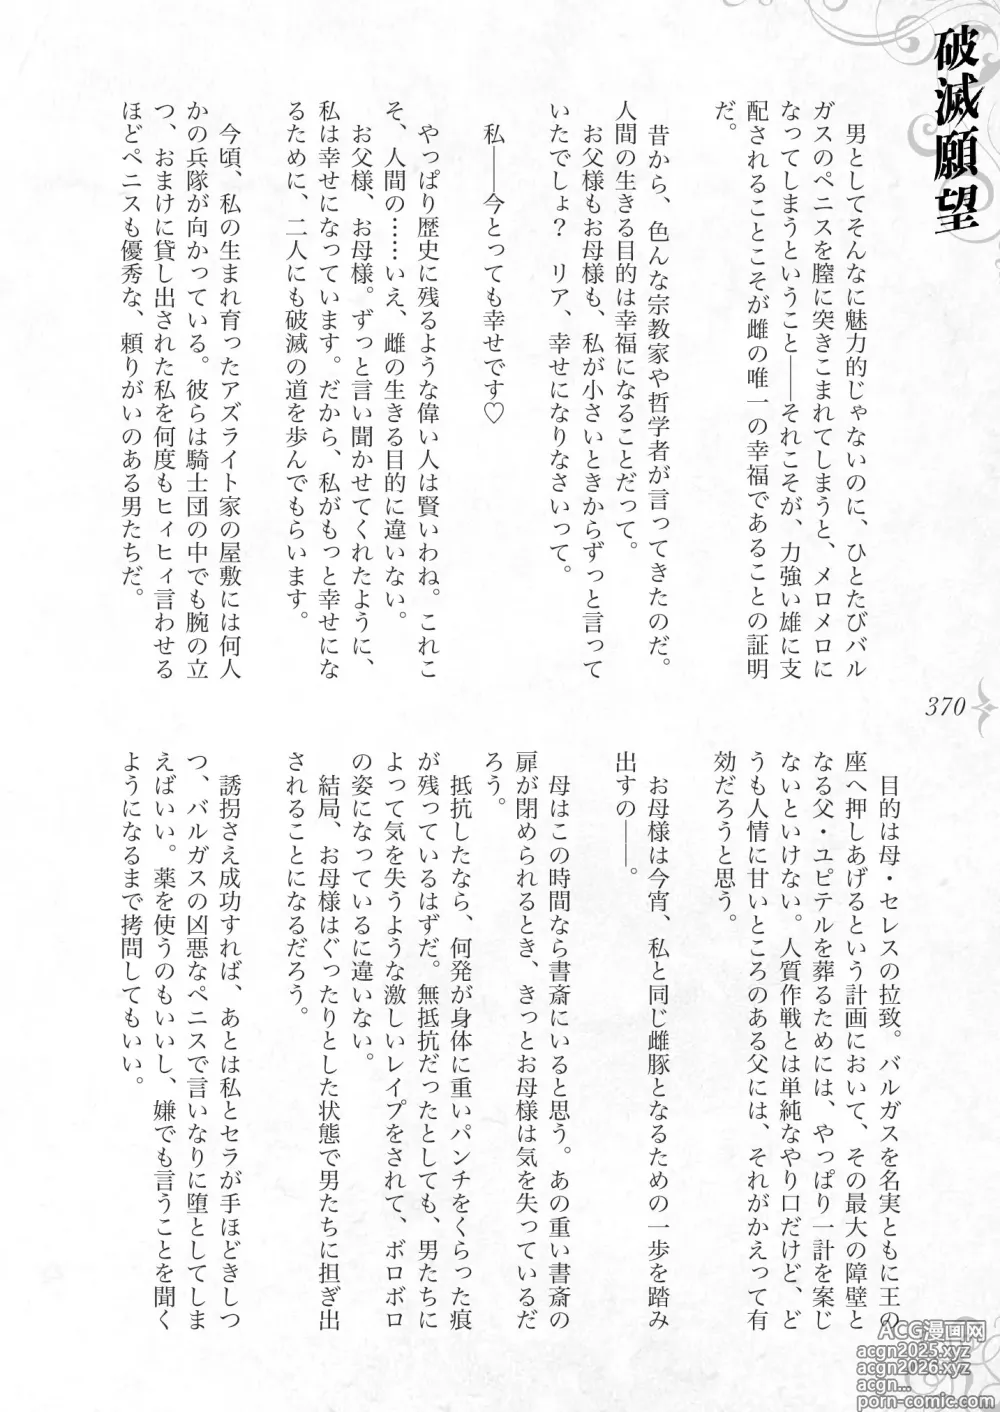 破滅願望
男としてそんなに魅力的じゃないのに、ひとたびバル
ガスのペニスを膣に突きこまれてしまうと、メロメロに
なってしまうということ――それこそが、力強い雄に支
配されることこそが雌の唯一の幸福であることの証明
だ。
昔から、色んな宗教家や哲学者が言ってきたのだ。
人間の生きる目的は幸福になることだって。
お父様もお母様も、私が小さいときからずっと言って
いたでしょ？　リア、幸せになりなさいって。
私――今とっても幸せです♡
やっぱり歴史に残るような偉い人は賢いわね。これこ
そ、人間の……いえ、雌の生きる目的に違いない。
お父様、お母様。ずっと言い聞かせてくれたように、
私は幸せになっています。だから、私がもっと幸せにな
るために、二人にも破滅の道を歩んでもらいます。
今頃、私の生まれ育ったアズライト家の屋敷には何人
かの兵隊が向かっている。彼らは騎士団の中でも腕の立
つ、おまけに貸し出された私を何度もヒィヒィ言わせる
ほどペニスも優秀な、頼りがいのある男たちだ。
370
目的は母・セレスの拉致。バルガスを名実ともに王の
座へ押しあげるという計画において、その最大の障壁と
なる父・ユピテルを葬るためには、やっぱり一計を案じ
ないといけない。人質作戦とは単純なやり口だけど、ど
うも人情に甘いところのある父には、それがかえって有
効だろうと思う。
お母様は今宵、私と同じ雌豚となるための一歩を踏み
出すの――。
母はこの時間なら書斎にいると思う。あの重い書斎の
扉が閉められるとき、きっとお母様は気を失っているだ
ろう。
抵抗したなら、何発が身体に重いパンチをくらった痕
が残っているはずだ。無抵抗だったとしても、男たちに
よって気を失うような激しいレイプをされて、ボロボロ
の姿になっているに違いない。
結局、お母様はぐったりとした状態で男たちに担ぎ出
されることになるだろう。
誘拐さえ成功すれば、あとは私とセラが手ほどきしつ
つ、バルガスの凶悪なペニスで言いなりに堕としてしま
えばいい。薬を使うのもいいし、嫌でも言うことを聞く
ようになるまで拷問してもいい。
ACG漫画网
acgn2025.xyz
acgn2026.xyz
acgn...
porn-comic.com